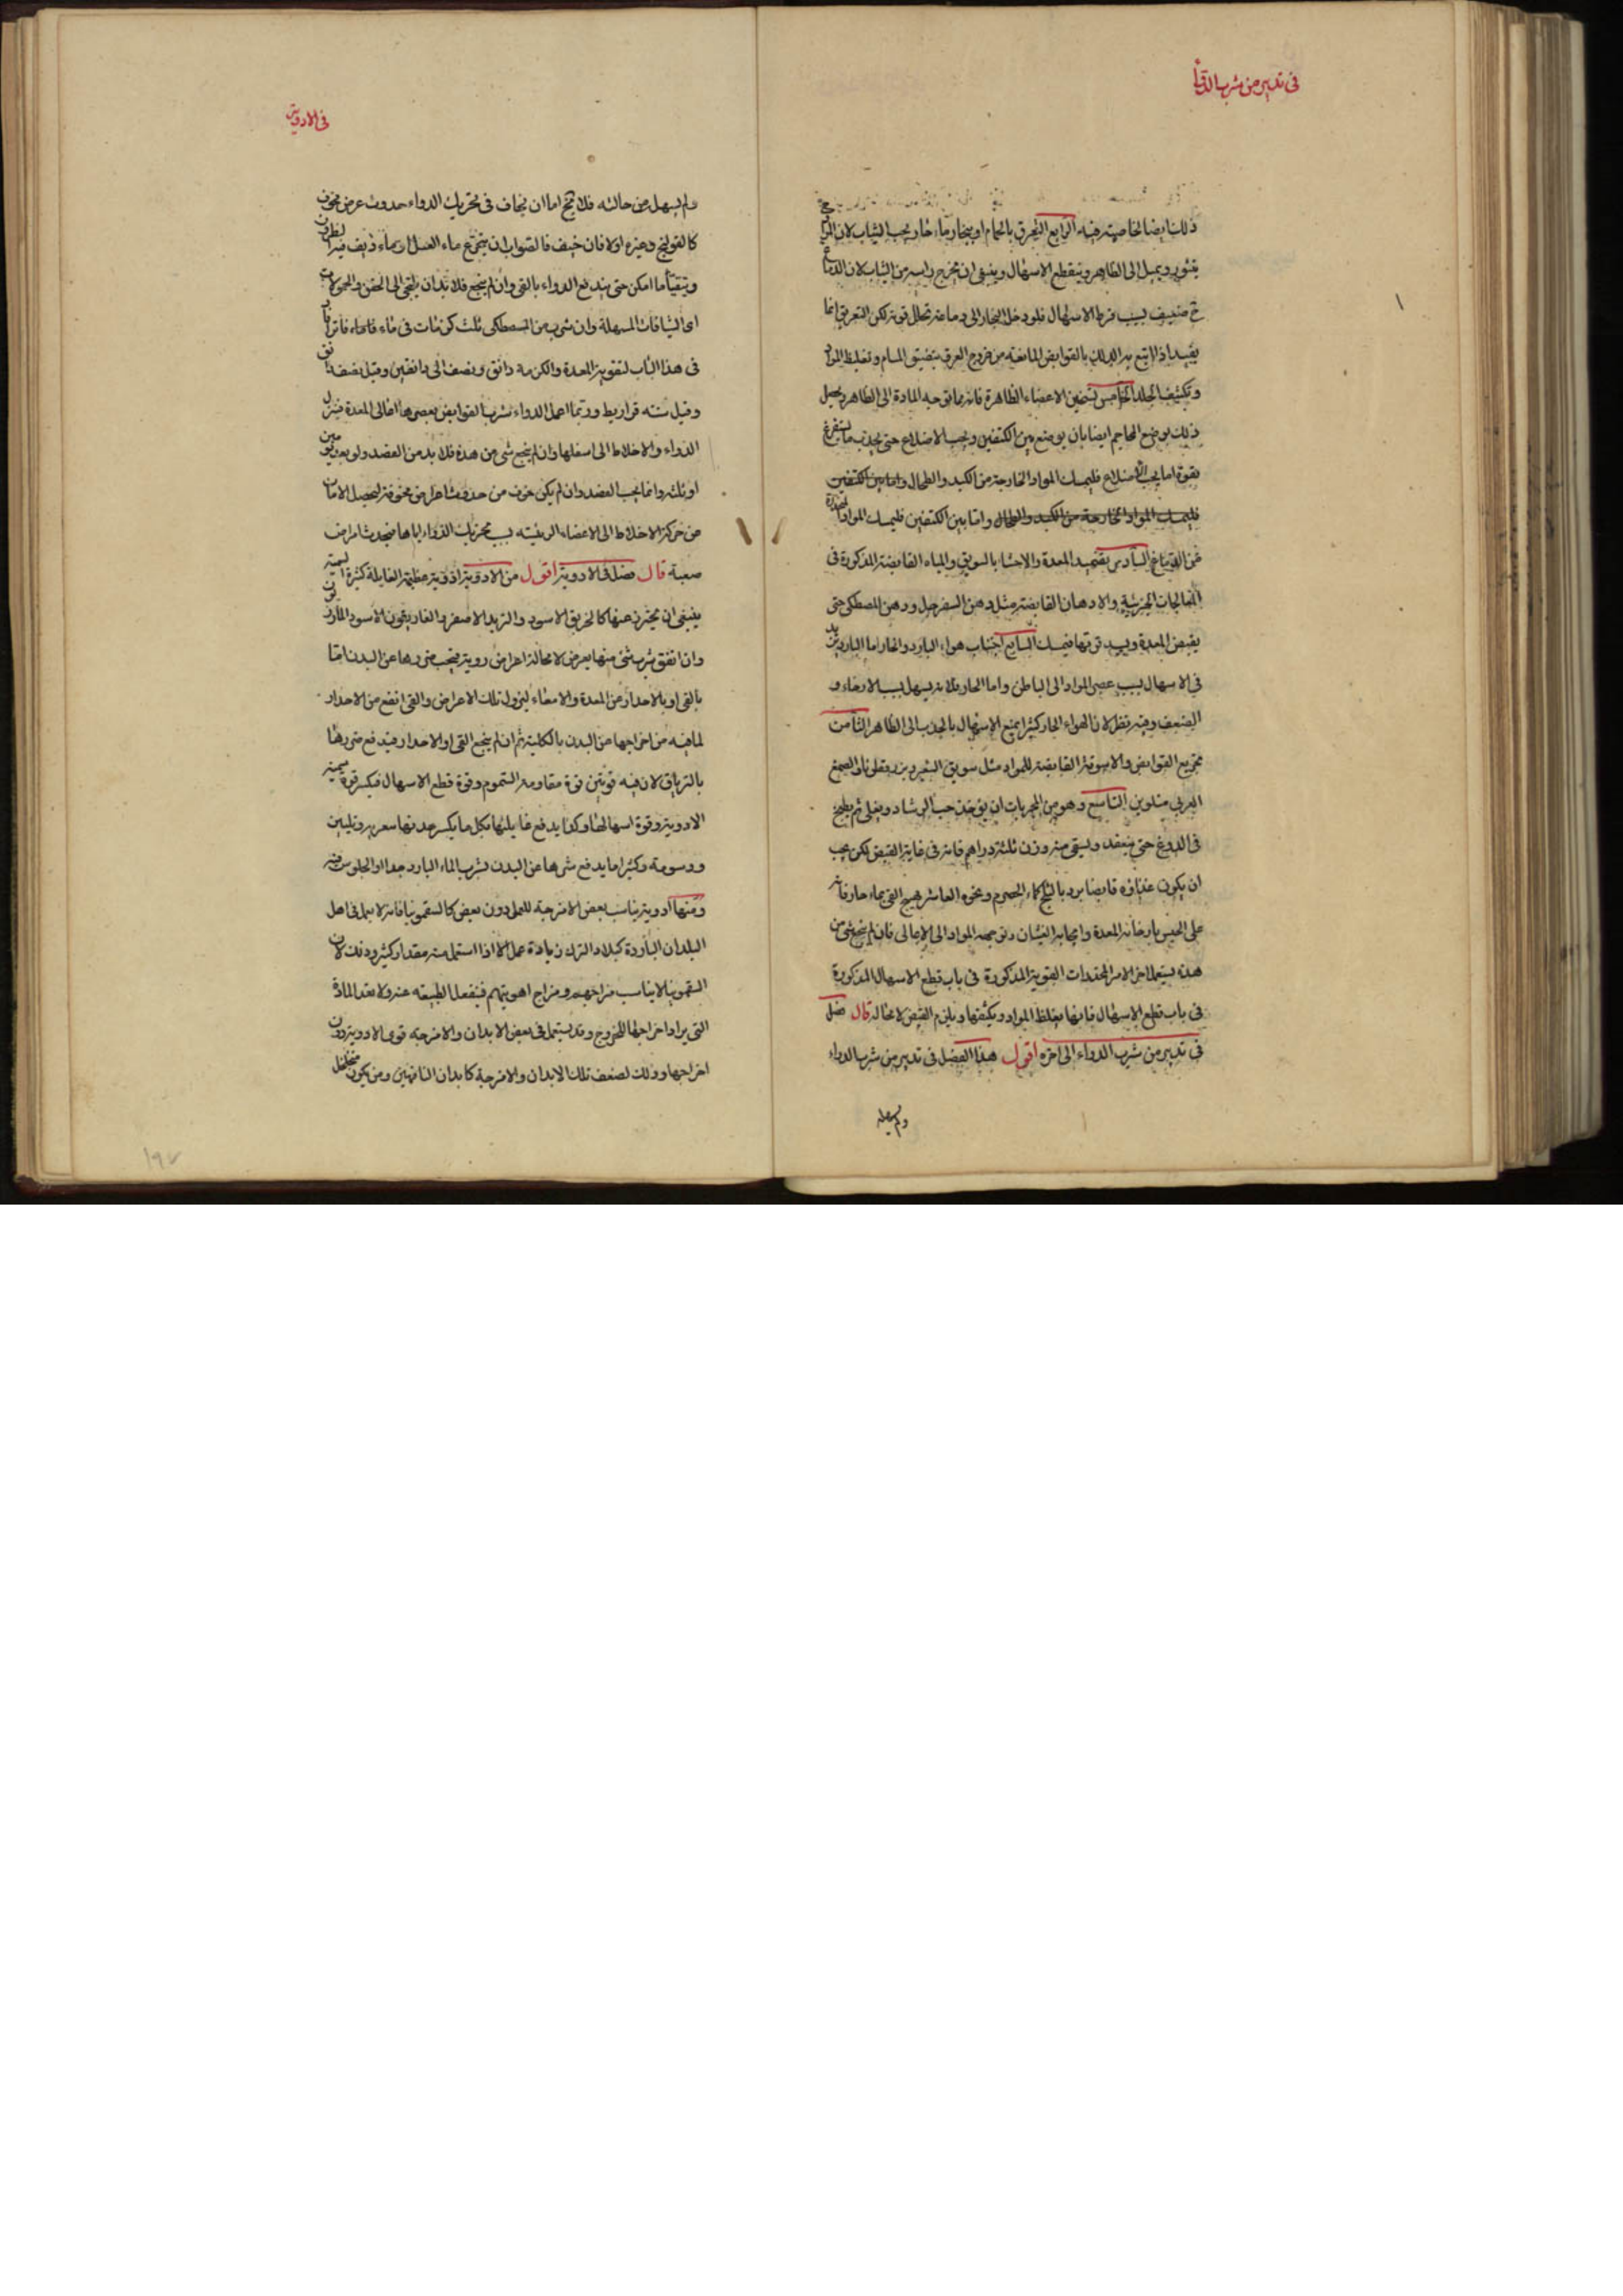 في تدبير من شرب الدواء
ذلك ايضا لخاصيته فيه الرابع التعرق بالحمام او ببخار ماء حار تحت الثياب لان
يثور ويميل الى الظاهر وينقطع الاسهال وينبغي ان يخرج راسه من الثياب لان الدماغ
ح ضعيف بسبب فرط الاسهال فلو دخل البخار الى دماغه تحلل قوته لكن التعريق انما
يفيد اذا اتبع بدلك بالقوابض المانعة من خروج العرق بتضييق المسام وتغليظ المواد
وتكثيف الجلد الخامس تسخين الاعضاء الظاهرة فانه مما توجه المادة الى الظاهر ويحصل
ذلك بوضع المحاجم ايضا بان يوضع بين الكتفين وتحت الاضلاع حتى يجذب ما يستفرغ
بقوة اما تحت الاضلاع فليمسك المواد الخارجة من الكبد والطحال واما بين الكتفين
فليمسك المواد الخارجة من الكبد والطحال واما بين الكتفين فليمسك المواد المنحدرة
من الدماغ السادس تضميد المعدة والاحشا بالسويق والمياه القابضة المذكورة في
المعالجات الجزئية والادهان القابضة مثل دهن السفرجل ودهن المصطكى حتى
يقبض المعدة ويسد قوتها فيمسك السابع اجتناب هواء البارد والحار اما البارد يزيد
في الاسهال بسبب عصر المواد الى الباطن واما الحار فلانه يسهل بسبب الارخاء و
الضعف وفيه نظر لان الهواء الحار كثيرا يمنع الاسهال بالجذب الى الظاهر الثامن
تجريع القوابض والاسوقة القابضة للمواد مثل سويق الشعير وبزر قطونا والصمغ
العربي مقلوين التاسع وهو من المجربات ان يؤخذ حب الرشاد ويغلى ثم يطبخ
في الدوغ حتى ينعقد ويسقى منه وزن ثلثة دراهم فانه في غاية القبض لكن يجب
ان يكون غذاؤه قابضا برد بالثلج كماء الحصرم ونحوه العاشر تهييج القي بماء حار فانه
على الحبس بارخائه المعدة وايجابه الغثيان وتوجهه المواد الى الاعالى فان لم ينجع شئ من
هذه يستعمل اخر الامر المخدرات القوية المذكورة في باب قطع الاسهال المذكورة
في باب قطع الاسهال فانها يغلظ المواد ويكثفها ويلزم القبض لا محالة قال فصل
في تدبير من شرب الدواء الى اخره اقول هذا الفصل في تدبير من شرب الدواء
ولم يسهله
في الادوية
ولم يسهل من حالته فلا يخ اما ان يخاف في تحريك الدواء حدوث عرض مخوف
كالقولنج وغيره اولا فان خيف فالصواب ان يتجرع ماء العسل او بماء ذيف فيه النطرون
ويتقيأ ما امكن حتى يندفع الدواء بالقي وان لم ينجع فلا بد ان يلتجى الى الحقن والحمولات
اى الشيافات المسهلة وان شرب من المصطكى ثلث كرمات في ماء فاتر
في هذا الباب لتقوية المعدة والكرمة دانق ونصف الى دانقين وقيل نصف دانق
وقيل ستة قراريط وربما اعمل الدواء شرب القوابض بعصرها اعالى المعدة فينزل
الدواء والاخلاط الى اسفلها وان لم ينجع شئ من هذه فلا بد من الفصد ولو بعد يومين
او ثلثه وانما يجب الفصد وان لم يكن خوف من حدوث اعراض مخوفة ليحصل الامان
من حركة الاخلاط الى الاعضاء الرئيسة بسبب تحريك الدواء اياها فيحدث امراض
صعبة قال فصل في الادوية اقول من الادوية ادوية عظيمة الغايلة كثيرة السمية
ينبغى ان يحترز عنها كالخربق الاسود والتربد الاصفر والغاريقون الاسود اللون
وان اتفق شرب شئ منها يعرض لا محالة اعراض روية فيجب ضررها عن البدن اما
بالقى او بالاحدار من المعدة والامعاء ليزول تلك الاعراض والقى انفع من الاحدار
لما فيه من اخراجها من البدن بالكلية ثم ان لم ينجع القى او الاحدار فيدفع ضررها
بالترياق لان فيه قوتين قوة مقاومة السموم وقوة قطع الاسهال فيكسر قوة سمية
الادوية وقوة اسهالها وكذا يدفع غايلتها بكل ما يكسر حدتها بتغرية وتليين
ودسومة وكثيرا ما يدفع شرها عن البدن شرب الماء البارد جدا او الجلوس فيه
ومنها ادوية يناسب بعض الامزجة للعمل دون بعض كالسقمونيا فانه لا يعمل في اهل
البلدان الباردة كبلاد الترك زيادة عمل الا اذا استعمل منه مقدار كثير وذلك لان
السقمونيا لا يناسب مزاجهم ومزاج اهويتهم فينفعل الطبيعه عنه ولا تعد المادة
التى يراد اخراجها للخروج وقد يستعمل في بعض الابدان والامزجه قوى الادوية دون
اخراجها وذلك لضعف تلك الابدان والامزجة كابدان الناقهين ومن يكون متخلخل
١٩٧